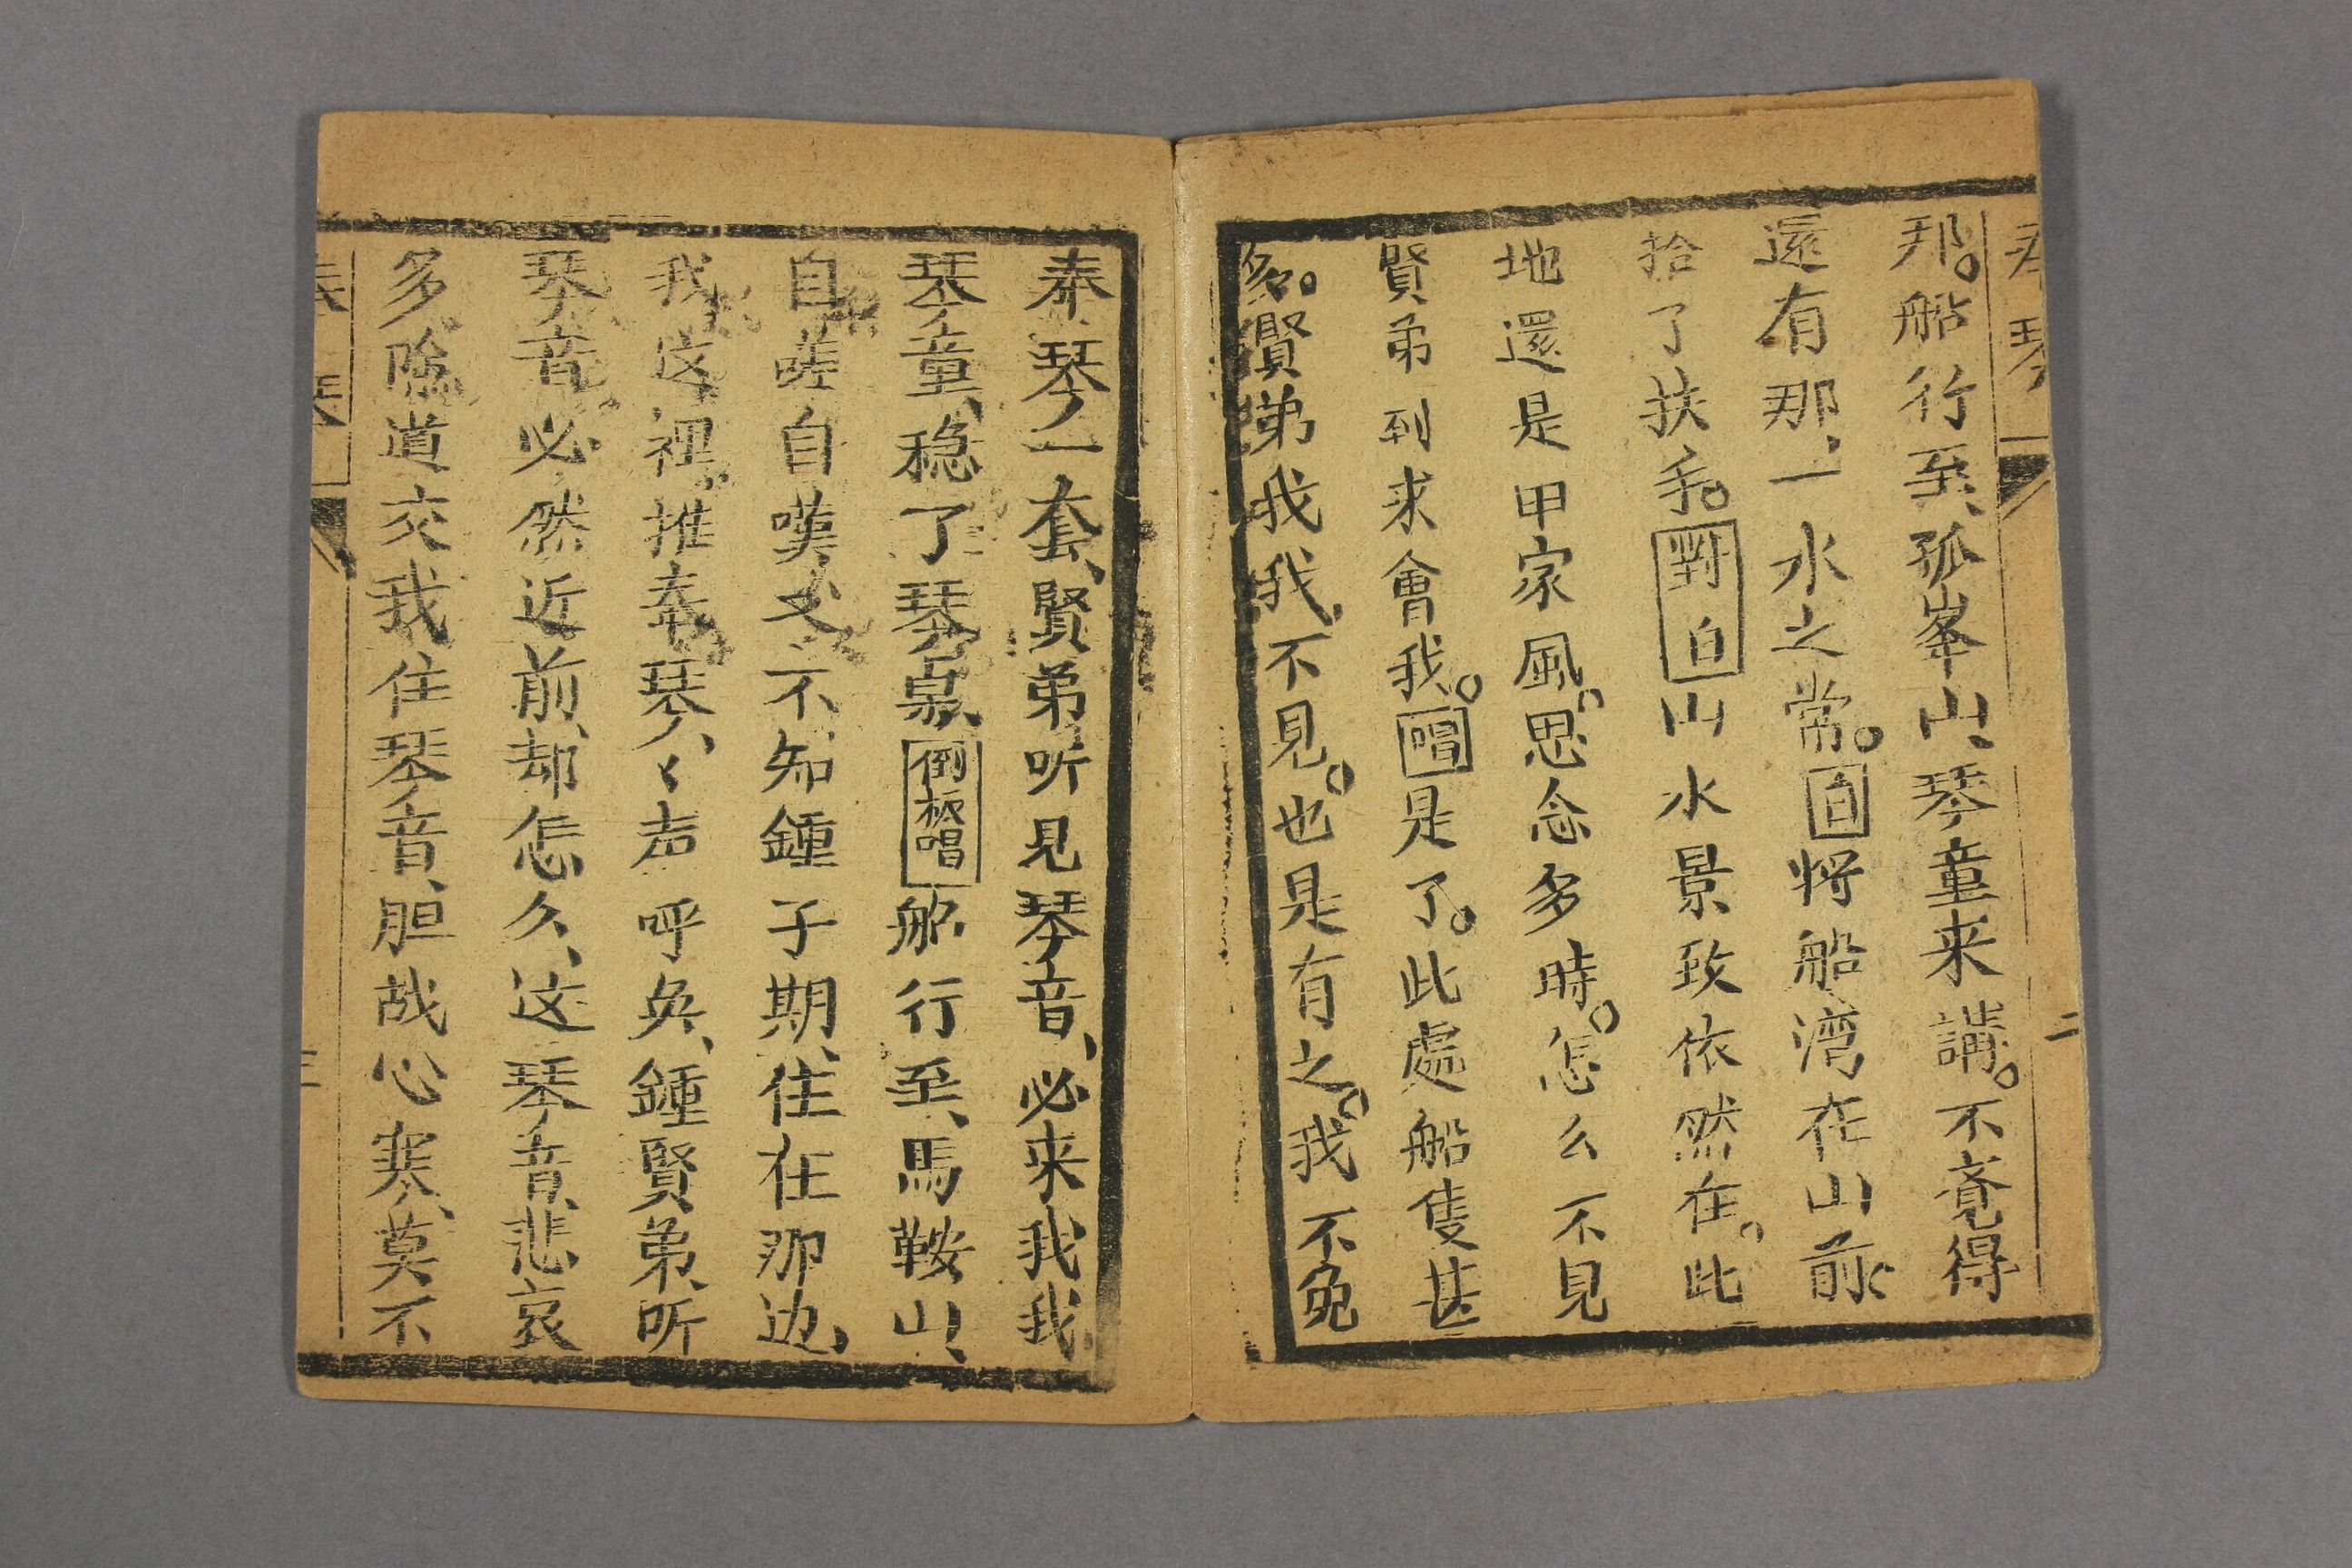 奉琴
二
那。船行至、孤峯山、琴童来講。不覚得
還有那、一水之常。白将船湾在山前
拾了扶手。對白山水景致依然在、此
地還是甲家風。思念多時。怎么不見
賢弟到求會我。唱是了。此處船隻甚
多。賢弟我我、不見。也是有之。我不免
奉琴一套、賢弟听見琴音、必来我我
琴童、稳了琴桌、倒板唱船行至、馬鞍山、
自嗟自嘆、又不知鍾子期、住在那边、
我这裡、推奉琴、〻声呼奂、鍾賢弟、听
琴音、必然近前、却怎久、这琴音、悲哀
多陰道交我住琴音、胆战心寒、莫不
三